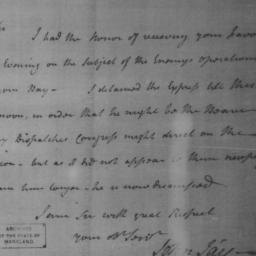 I had the Honor of receiving your favor
Evening on the Subject of the Enemys operations
Bay – I detained the Express till this
noon, in order that he might be the Bearer
Dispatches Congress might direct on the
– but as it did not appear to them necessary
him longer – he is now dismissed
I am Sir with great Respect
your Servt
John Jay
ARCHIVES
OF THE STATE OF
MARYLAND